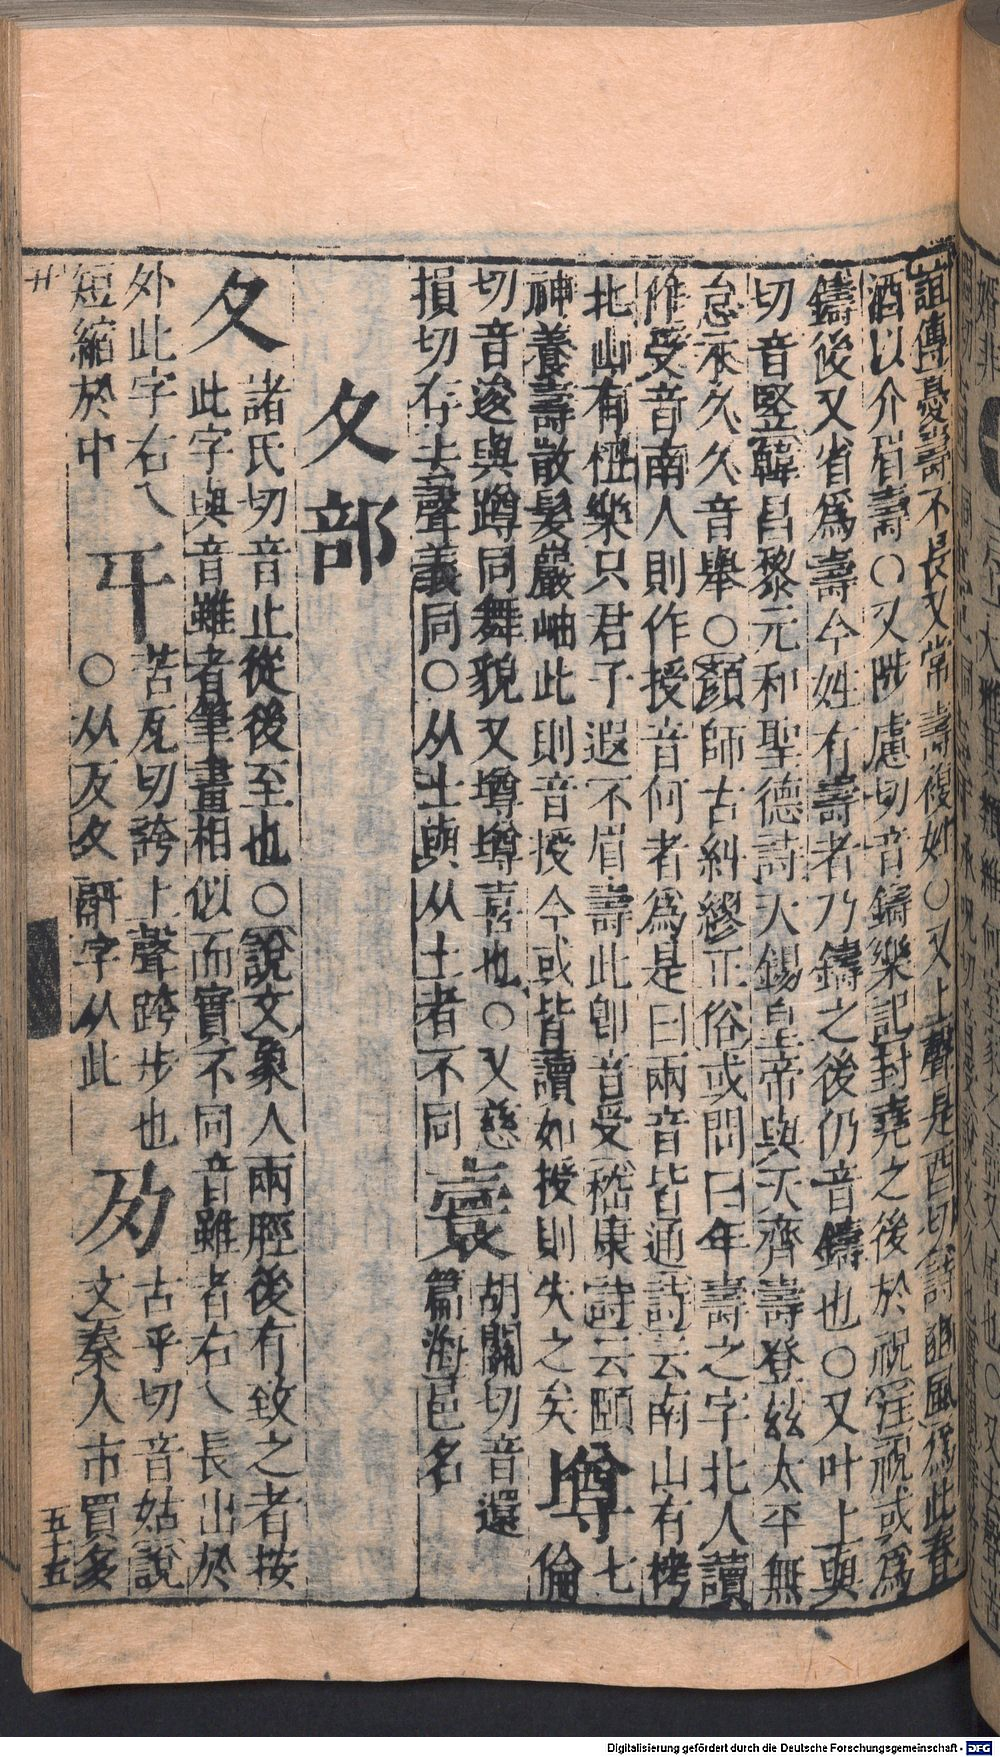 誼傳憂壽不長又常壽複姓○又上聲是酉切詩豳風爲此春
酒以介眉壽○又陟慮切音鑄樂記封堯之後於祝注祝或爲
鑄後又省爲壽今姓有壽者乃鑄之後仍音鑄也○又叶上與
切音竪韓昌黎元和聖德詩天錫皇帝與天齊壽登兹太平無
怠永久久音舉○顏師古糾繆正俗或問曰年壽之字北人讀
作受音南人則作授音何者爲是曰兩音皆通詩云南山有栲
北山有杻樂只君子遐不眉壽此卽音受嵇康詩云頤
神養壽散髮巖岫此則音授今或皆讀如授則失之矣
墫
七倫
切音逡與蹲同舞貌又墫墫喜也○又慈
損切存去聲義同○从士與从土者不同
寰
胡關切音還
篇海邑名
夂部
夂
諸氏切音止從後至也○說文象人兩脛後有致之者按
此字與音雖者筆畫相似而實不同音雖者右乀長出於
外此字右乀
短縮於中
㐄
苦瓦切誇上聲跨步也
○从反夂𦥯字从此
夃
古乎切音姑說
文秦人市買多
廾
五十五
Digitalisierung gefördert durch die Deutsche Forschungsgemeinschaft - DFG